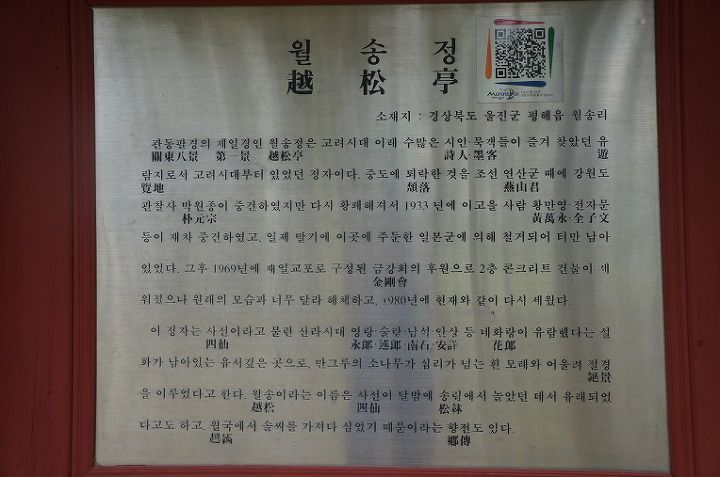 월 송 정
越 松 亭
소재지 : 경상북도 울진군 평해읍 월송리
관동팔경의 제일경인 월송정은 고려시대 이래 수많은 시인·묵객들이 즐겨 찾았던 유
關東八景 第一景 越松亭 詩人·墨客 遊
람지로서 고려시대부터 있었던 정자이다. 중도에 퇴락한 것을 조선 연산군 때에 강원도
覽地 頹落 燕山君
관찰사 박원종이 중건하였지만 다시 황폐해져서 1933년에 이고을 사람 황만영·전자문
朴元宗 黃萬永·全子文
등이 재차 중건하였고, 일제 말기에 이곳에 주둔한 일본군에 의해 철거되어 터만 남아
있었다. 그후 1969년에 재일교포로 구성된 금강회의 후원으로 2층 콘크리트 건물이 세
金剛會
워졌으나 원래의 모습과 너무 달라 해체하고, 1980년에 현재와 같이 다시 세웠다.
이 정자는 사선이라고 불린 신라시대 영랑·술랑·남석·안상 등 네화랑이 유람했다는 설
四仙 永郎·述郎·南石·安詳 花郎
화가 남아있는 유서깊은 곳으로, 만그루의 소나무가 십리가 넘는 흰 모래와 어울려 절경
絕景
을 이루었다고 한다. 월송이라는 이름은 사선이 달밤에 송림에서 놀았던 데서 유래되었
越松 四仙 松林
다고도 하고, 월국에서 솔씨를 가져다 심었기 때문이라는 향전도 있다.
越國 鄕傳